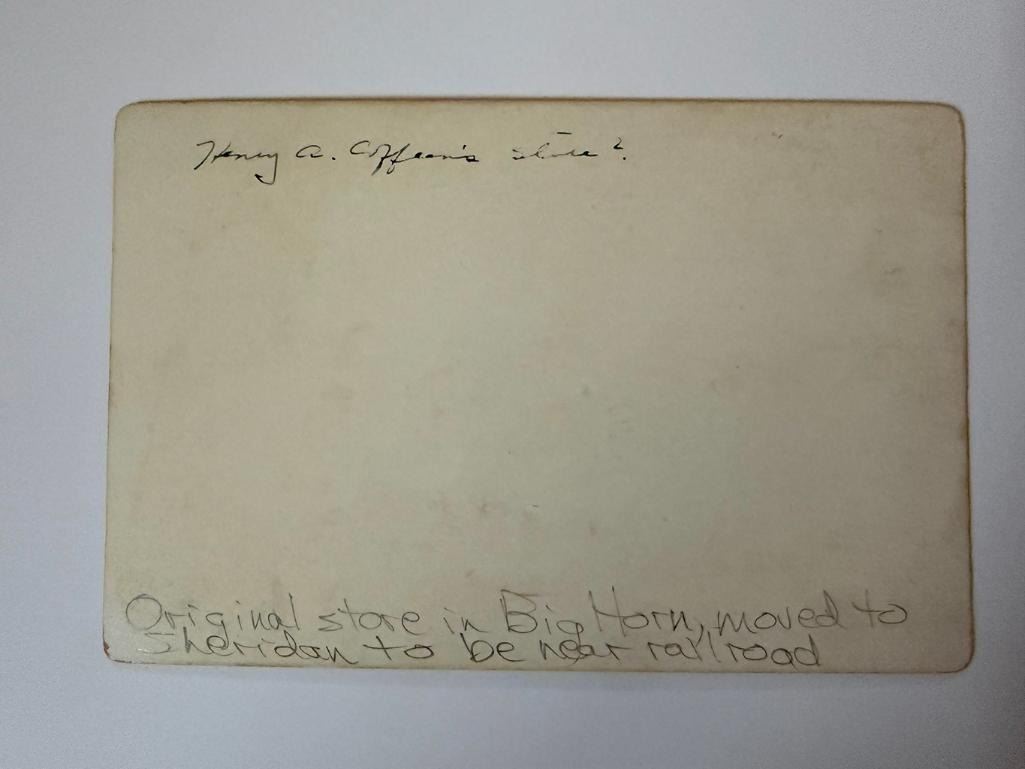 Henry A. Coffeen's Store?
Original store in Big Horn, moved to
Sheridan to be near railroad